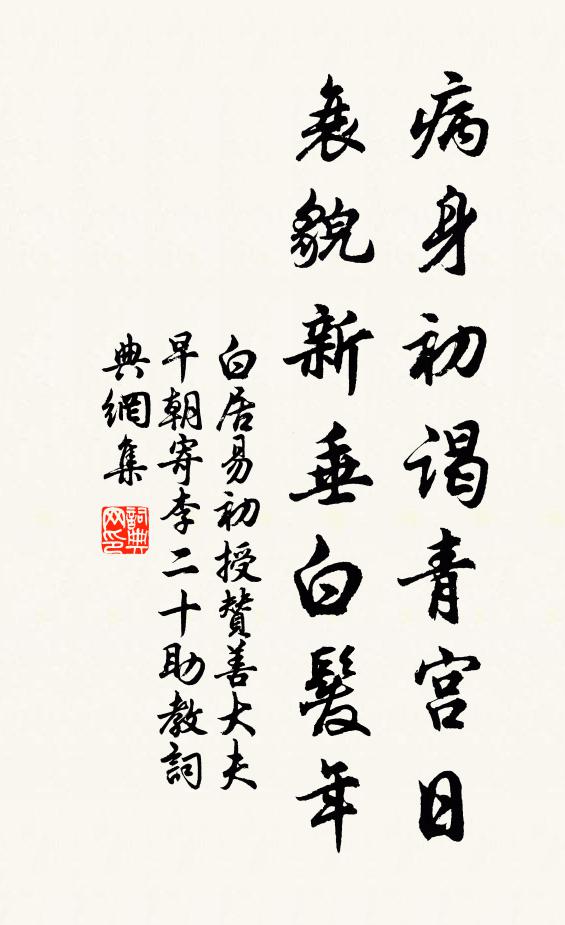 病身初謁青宮日
衰貌新垂白髮年
白居易初授贊善大夫
早朝寄李二十助教詞
典網集
詞典网印